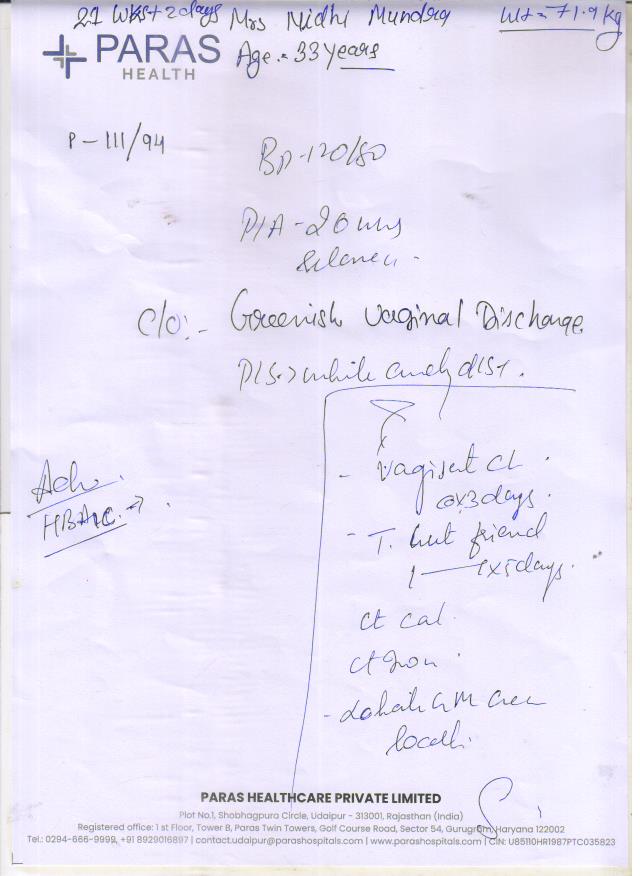 21 Wks+2days Mrs Nidhi Mundra Wt = 71.9 kg
PARAS
HEALTH
Age :- 33 years
P - 111/94
BP - 120/80
P/A - 20 wks
C/O :- Greenish Vaginal Discharge
P/S -> white curdy dist.
Adv.
- cl.
x3days.
HBA1C. ->
- T. Gut friend
1 — 1x5days.
ct cal.
ct Iron.
-
locally
PARAS HEALTHCARE PRIVATE LIMITED
Plot No.1, Shobhagpura Circle, Udaipur - 313001, Rajasthan (India)
Registered office: 1 st Floor, Tower B, Paras Twin Towers, Golf Course Road, Sector 54, Gurugram, Haryana 122002
Tel.: 0294-666-9999, +91 8929016897 | contact.udaipur@parashospitals.com | www.parashospitals.com | CIN: U85110HR1987PTC035823